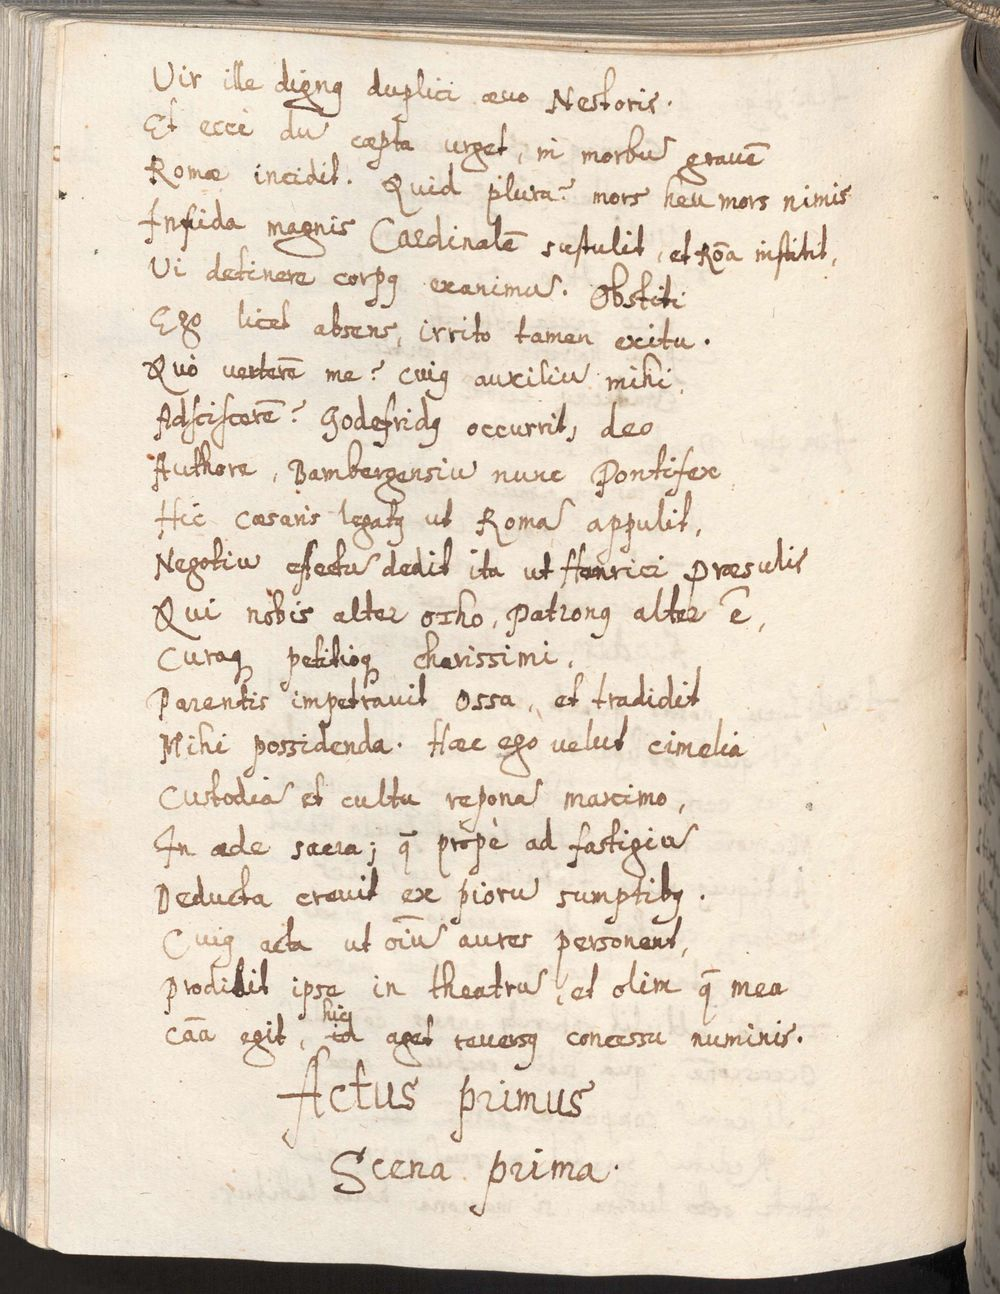 Vir ille dignꝰ duplici aevo Nestoris.
Et ecce dũ cœpta urget, in morbũ gravẽ
Romæ incidit. Quid plura? mors heu mors nimis
Infida magnis Cardinalẽ sustulit, et Rõa institit,
Vi detinere corpꝰ exanimũ. Obstiti
Ego licet absens, irrito tamen exitu.
Quò verterẽ me? cuiꝰ auxiliũ mihi
Adsciscerẽ? Godefridꝰ occurrit, deo
Authore, Bambergensiũ nunc Pontifex
Hic Cæsaris legatꝰ ut Romã appulit,
Negotiũ effectũ dedit ita ut Henrici Præsulis
Qui nobis alter Otho, Patronꝰ alter ẽ,
Curaq petitioq charissimi,
Parentis impetravit ossa, et tradidit
Mihi possidenda. Hæc ego velut cimelia
Custodiã et cultu reponã maximo,
In æde sacra; q̃ propè ad fastigiũ
Deducta crevit ex piorũ sumptibꝰ.
Cuiꝰ acta ut oĩũ aures personent,
Prodibit ipse in theatrũ, et olim q̃ mea
Cãa egit, hic
id aget reversꝰ concessu numinis.
Actus primus
Scena prima.